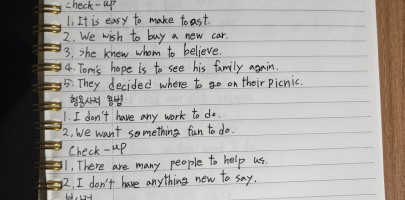 check-up
1, It is easy to make toast.
2, We wish to buy a new car.
3, She knew whom to believe.
4. Tom's hope is to see his family again.
5. They decided where to go on their Picnic.
형용사적 용법
1. I don't have any work to do.
2, We want something fun to do.
Check-up
1, There are many people to help us.
2, I don't have anything new to say.